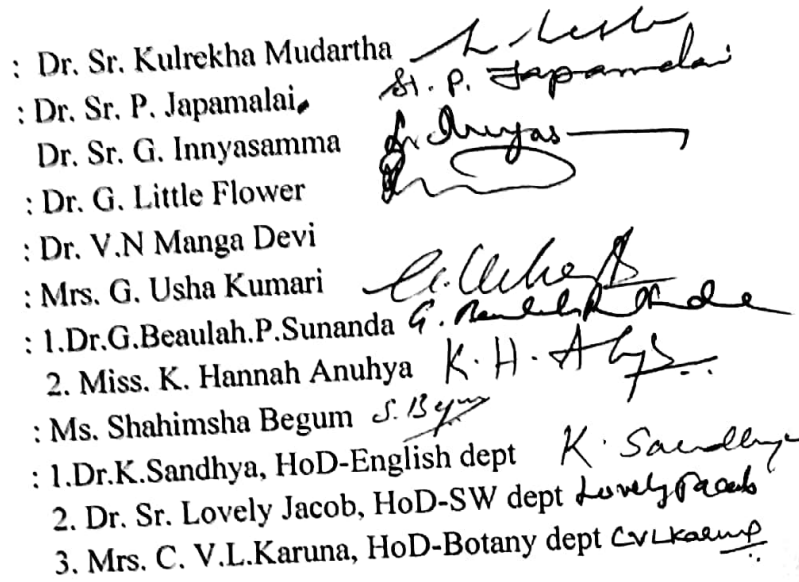 : Dr. Sr. Kulrekha Mudartha
: Dr. Sr. P. Japamalai. Sr. P. Japamalai
Dr. Sr. G. Innyasamma Sr. Innyas
: Dr. G. Little Flower
: Dr. V.N Manga Devi
: Mrs. G. Usha Kumari G. Usha
: 1.Dr.G.Beaulah.P.Sunanda G.
2. Miss. K. Hannah Anuhya K. H. A
: Ms. Shahimsha Begum S. Begum
: 1.Dr.K.Sandhya, HoD-English dept K. Sandhya
2. Dr. Sr. Lovely Jacob, HoD-SW dept Lovely Jacob
3. Mrs. C. V.L.Karuna, HoD-Botany dept CVLKaruna